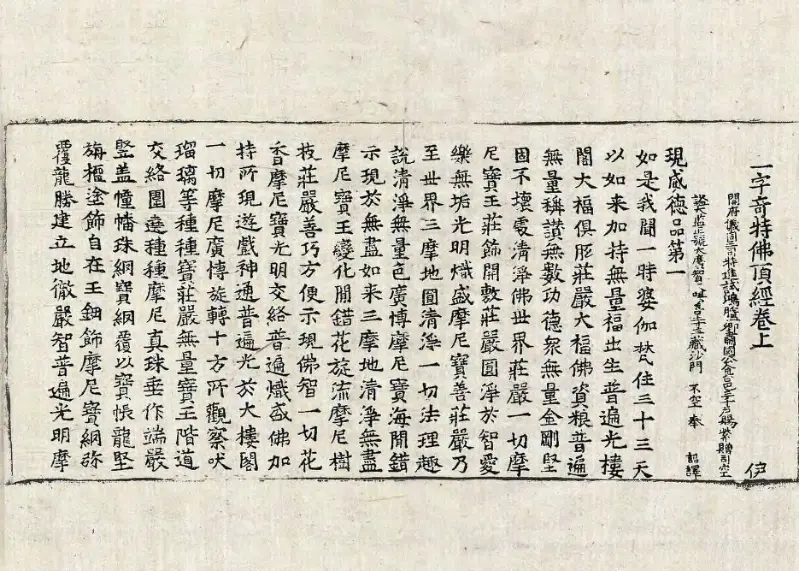 一字奇特佛頂經卷上
伊
開府儀同三司特進試鴻臚卿肅國公食邑三千戶賜紫贈司空
諡大鑒正號大廣智大興善寺三藏沙門不空奉 詔譯
現威德品第一
如是我聞一時婆伽梵住三十三天
以如來加持無量福出生普遍光樓
閣大福俱胝莊嚴大福佛資粮普遍
無量稱讚無數功德衆無量金剛堅
固不壞處清淨佛世界莊嚴一切摩
尼寶王莊飾開敷莊嚴圓淨於智愛
樂無垢光明熾盛摩尼寶善莊嚴乃
至世界三摩地圓清淨一切法理趣
說清淨無量色廣博摩尼寶海開錯
示現於無盡如來三摩地清淨無盡
摩尼寶王變化開錯花旋流摩尼樹
枝莊嚴善巧方便示現佛智一切花
香摩尼寶光明交絡普遍熾盛佛加
持所現遊戲神通普遍光於大樓閣
一切摩尼廣博旋轉十方所觀察吠
瑠璃等種種寶莊嚴無量寶王階道
交絡圍遶種種摩尼真珠垂作端嚴
竪蓋幢幡珠網寶網覆以寶帳龍堅
旃檀塗飾自在王鈿飾摩尼寶網弥
覆龍勝建立地徹嚴智普遍光明摩